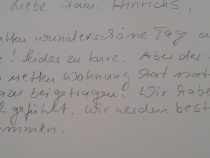 Liebe Fam. Hinrichs,
wunderschöne Tag
! Leider zu kurz. Aber der
netten Wohnung hat
beigetragen! Wir habe
gefühlt. Wir werden best
ommen.